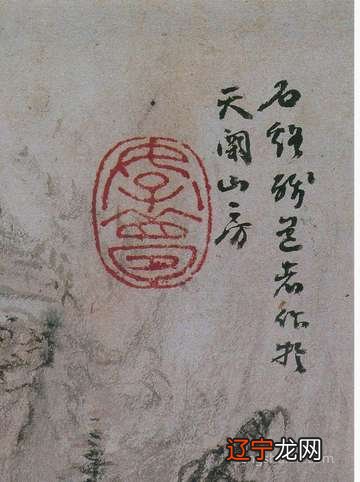 石谿殘道者作於
天闕山房
辽宁龙网